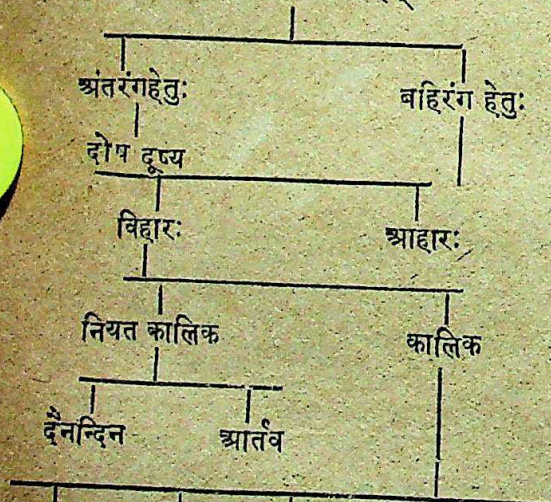 अंतरंगहेतुः बहिरंग हेतुः
दोष दूष्य
विहारः आहारः
नियत कालिक कालिक
दैनन्दिन आर्तव